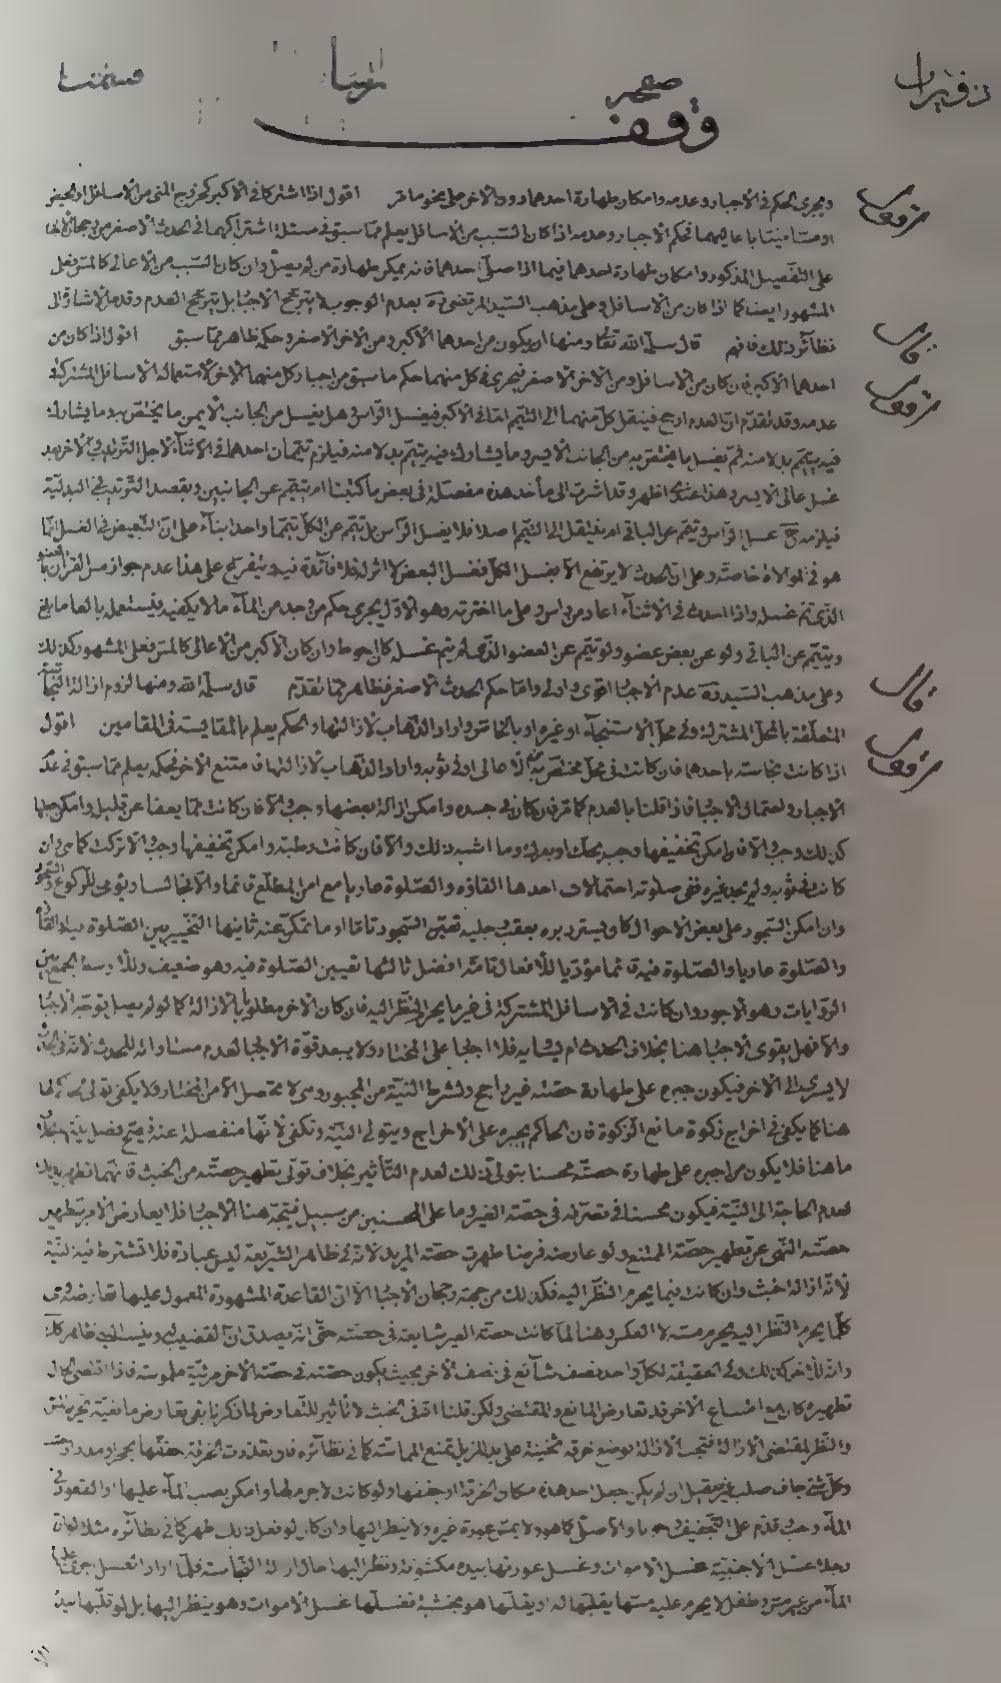 صفحه
وقف
ويجرى الحكم فى الاجبار وعدمه وامكان طهارة احدهما دون الاخر على نحو ما مر اقول اذا اشتركا فى الاكبر كخروج المنى من الاسافل او الحيض
او مسا ميتا باعاليهما فحكم الاجبار وعدمه اذا كان السبب من الاسافل يعلم مما سبق فى مسئلة اشتراكهما فى الحدث الاصغر من
على التفصيل المذكور وامكان طهارة احدهما فيما اذا صلى احدهما فانه يمكن طهارة من لم يصل وان كان السبب من الاعالى كالمس فعلى
المشهور ايضا كما اذا كان من الاسافل وعلى مذهب السيد المرتضى ره بعدم الوجوب لا يترجح الاجبار بل يترجح العدم وقدم الاشارة الى
نظائر ذلك فافهم قال سلمه الله تعالى ومنها ان يكون من احدهما الاكبر ومن الاخر الاصغر وحكمه ظاهر مما سبق اقول اذا كان من
احدهما الاكبر فان كان من الاسافل ومن الاخر الاصغر فيجرى فى كل منهما حكم ما سبق من اجبار كل منهما الاخر لاستعماله الاسافل المشتركة
عدمه وقد تقدم ان العدم ارجح فينتقل كل منهما الى التيمم اما فى الاكبر فيغسل الراس وهل يغسل من الجانب الايمن ما يختص به وما يشارك
فيه يتيمم بدلا منه ثم يغسل ما يختص به من الجانب الايسر وما يشارك فيه يتيمم بدلا منه فيلزم تيممان احدهما فى الاثناء لاجل الترتيب والاخر بعد
غسل عالى الايسر وهذا عندى اظهر وقد اشرت الى مأخذ هذه مفصلة فى بعض ما كتبنا ام يتيمم عن الجانبين ويقصد الترتيب فى البدلية
فيلزمه ح غسل الراس وتيمم عن الباقى ام ينتقل الى التيمم اصلا فلا يغسل الراس بل يتيمم عن الكل تيمما واحدا بناء على ان التبعيض فى الغسل انما
هو فى الموالاة خاصة وعلى ان الحدث لا يرتفع الا بغسل الكل فغسل البعض لا اثر له فلا فائدة فيه ويتفرع على هذا عدم جواز مس القران بالعضو
الذى تم غسله واذا احدث فى الاثناء اعاد من راس وعلى ما اخترته وهو الاول يجرى حكم من وجد من الماء ما لا يكفيه فيستعمل بالغا ما بلغ
ويتيمم عن الباقى ولو عن بعض عضو ولو تيمم عن العضو الذى لم يتم غسله كان احوط وان كان الاكبر من الاعالى كالمس فعلى المشهور كذلك
وعلى مذهب السيد ره عدم الاجبار اقوى واولى واما حكم الحدث الاصغر فظاهر مما تقدم قال سلمه الله ومنها لزوم ازالة النجاسة
المتعلقة بالمحل المشترك وفى محل الاستنجاء او غيره او بالخاص واراد الذهاب لازالتها والحكم يعلم بالمقايسة فى المقامين اقول
اذا كانت نجاسة باحدهما فان كانت فى محل مختص به من الاعالى او فى ثوبه واراد الذهاب لازالتها فامتنع الاخر فحكمه يعلم مما سبق فى عدم
الاجبار واحتمال الاجبار فاذا قلنا بالعدم كما مر فان كان فى جسده وامكن ازالة بعضها وجب والا فان كانت مما يعفا عن قليله وامكن جعلها
كذلك وجب والا فان امكن تخفيفها وجب بحك او بعرك وما اشبه ذلك والا فان كانت رطبة وامكن تخفيفها وجب والا تركت كما هى وان
كانت فى ثوبه ولم يجد غيره ففى صلوته احتمالات احدها القاؤه والصلوة عاريا مع امن المطلع قائما والا فجالسا ويومى للركوع والسجود
وان امكن السجود على بعض الاحوال كان يستر دبره بعقب رجليه تعين السجود تاما او ما تمكن عنه ثانيها التخيير بين الصلوة فيه والقائه
والصلوة عاريا والصلوة فيه قائما مؤديا للافعال تامة افضل ثالثها تعيين الصلوة فيه وهو ضعيف والاوسط الجمع بين
الروايات وهو الاجود وان كانت فى الاسافل المشتركة فى غير ما يحرم النظر اليه فان كان الاخر مطلوبا بالازالة كما لو لم يصل توجه الاجبار
والا فهل يقوى الاجبار هنا بخلاف الحدث ام يشابهه فلا اجبار على المختار ولا يبعد قوة الاجبار لعدم مساواته للحدث لانه فى الحدث
لا يسرى الى الاخر فيكون جبره على طهارة حصته غير راجح ولشرط النية من المجبور وهى لا تحصل الا من المختار ولا يكفى تولى الحاكم لها
هنا كما يكفى فى اخراج زكوة مانع الزكوة فان الحاكم يجبره على الاخراج ويتولى النية وتكفى لانها منفصلة عنه
ما هنا فلا يكون من اجبره على طهارة حصته محسنا بتولى ذلك لعدم التأثير بخلاف تولى تطهير حصته من الخبث فانهما
لعدم الحاجة الى النية فيكون محسنا فى تصرفه فى حصة الغير وما على المحسنين من سبيل فيتجه هنا الاجبار فلا يعارض الامر بتطهير
حصته النهى عن تطهير حصة الممتنع ولو عارضه فرضا طهرت حصة المريد لانه فى ظاهر الشريعة ليس عبادة فلا تشترط فيه النية
لانه ازالة خبث وان كانت فيما يحرم النظر اليه فكذلك من جهة رجحان الاجبار الا ان القاعدة المشهورة المعمول عليها تعارضه وهى
كلما يحرم النظر اليه يحرم مسه لا العكس وهنا لما كانت حصة الغير شايعة فى حصته حتى انه يصدق ان القضيب له وينسب اليه ظاهر كله
وانه للاخر كذلك وفى الحقيقة لكل واحد نصف شائع فى نصف الاخر بحيث يكون حصته فى حصة الاخر مرئية ملموسة فاذا اقتضى الحال
تطهيره كان مع امتناع الاخر قد تعارض المانع والمقتضى ولكن قلنا انه فى الخبث لا تأثير للتعارض لما ذكرنا بقى تعارض مانعية تحريم المس
والنظر لمقتضى الازالة فتجب الازالة بوضع خرقة ثخينة على يد المزيل تمنع المماسة كما فى نظائره فان تعذرت الخرقة خففها بحجر او مدر او خشب
وكل شئ جاف صلب غير صقيل ان لم يكن جعل احد هذه مكان الخرقة او خففها ولو كانت لا جرم لها وامكن بصب الماء عليها او القعود فى
الماء وجب قدم على التجفيف وجوبا والاصل كما هو ولا يمس عورة غيره ولا ينظر اليها وان كان لو فعل ذلك طهر كما فى نظائره مثلا لو ان
رجلا غسل الاجنبية غسل الاموات وغسل عورتها بيده مكشوفة ونظر اليها حال ازالة النجاسة فلما اراد الغسل جرى عليها
الماء من غير مس وطفل لا يحرم عليه مسها يقلبها له او يقلبها هو بخشبة فغسلها غسل الاموات وهو ينظر اليها بل لو قلبها بيده
اقول
قال
اقول
قال
اقول